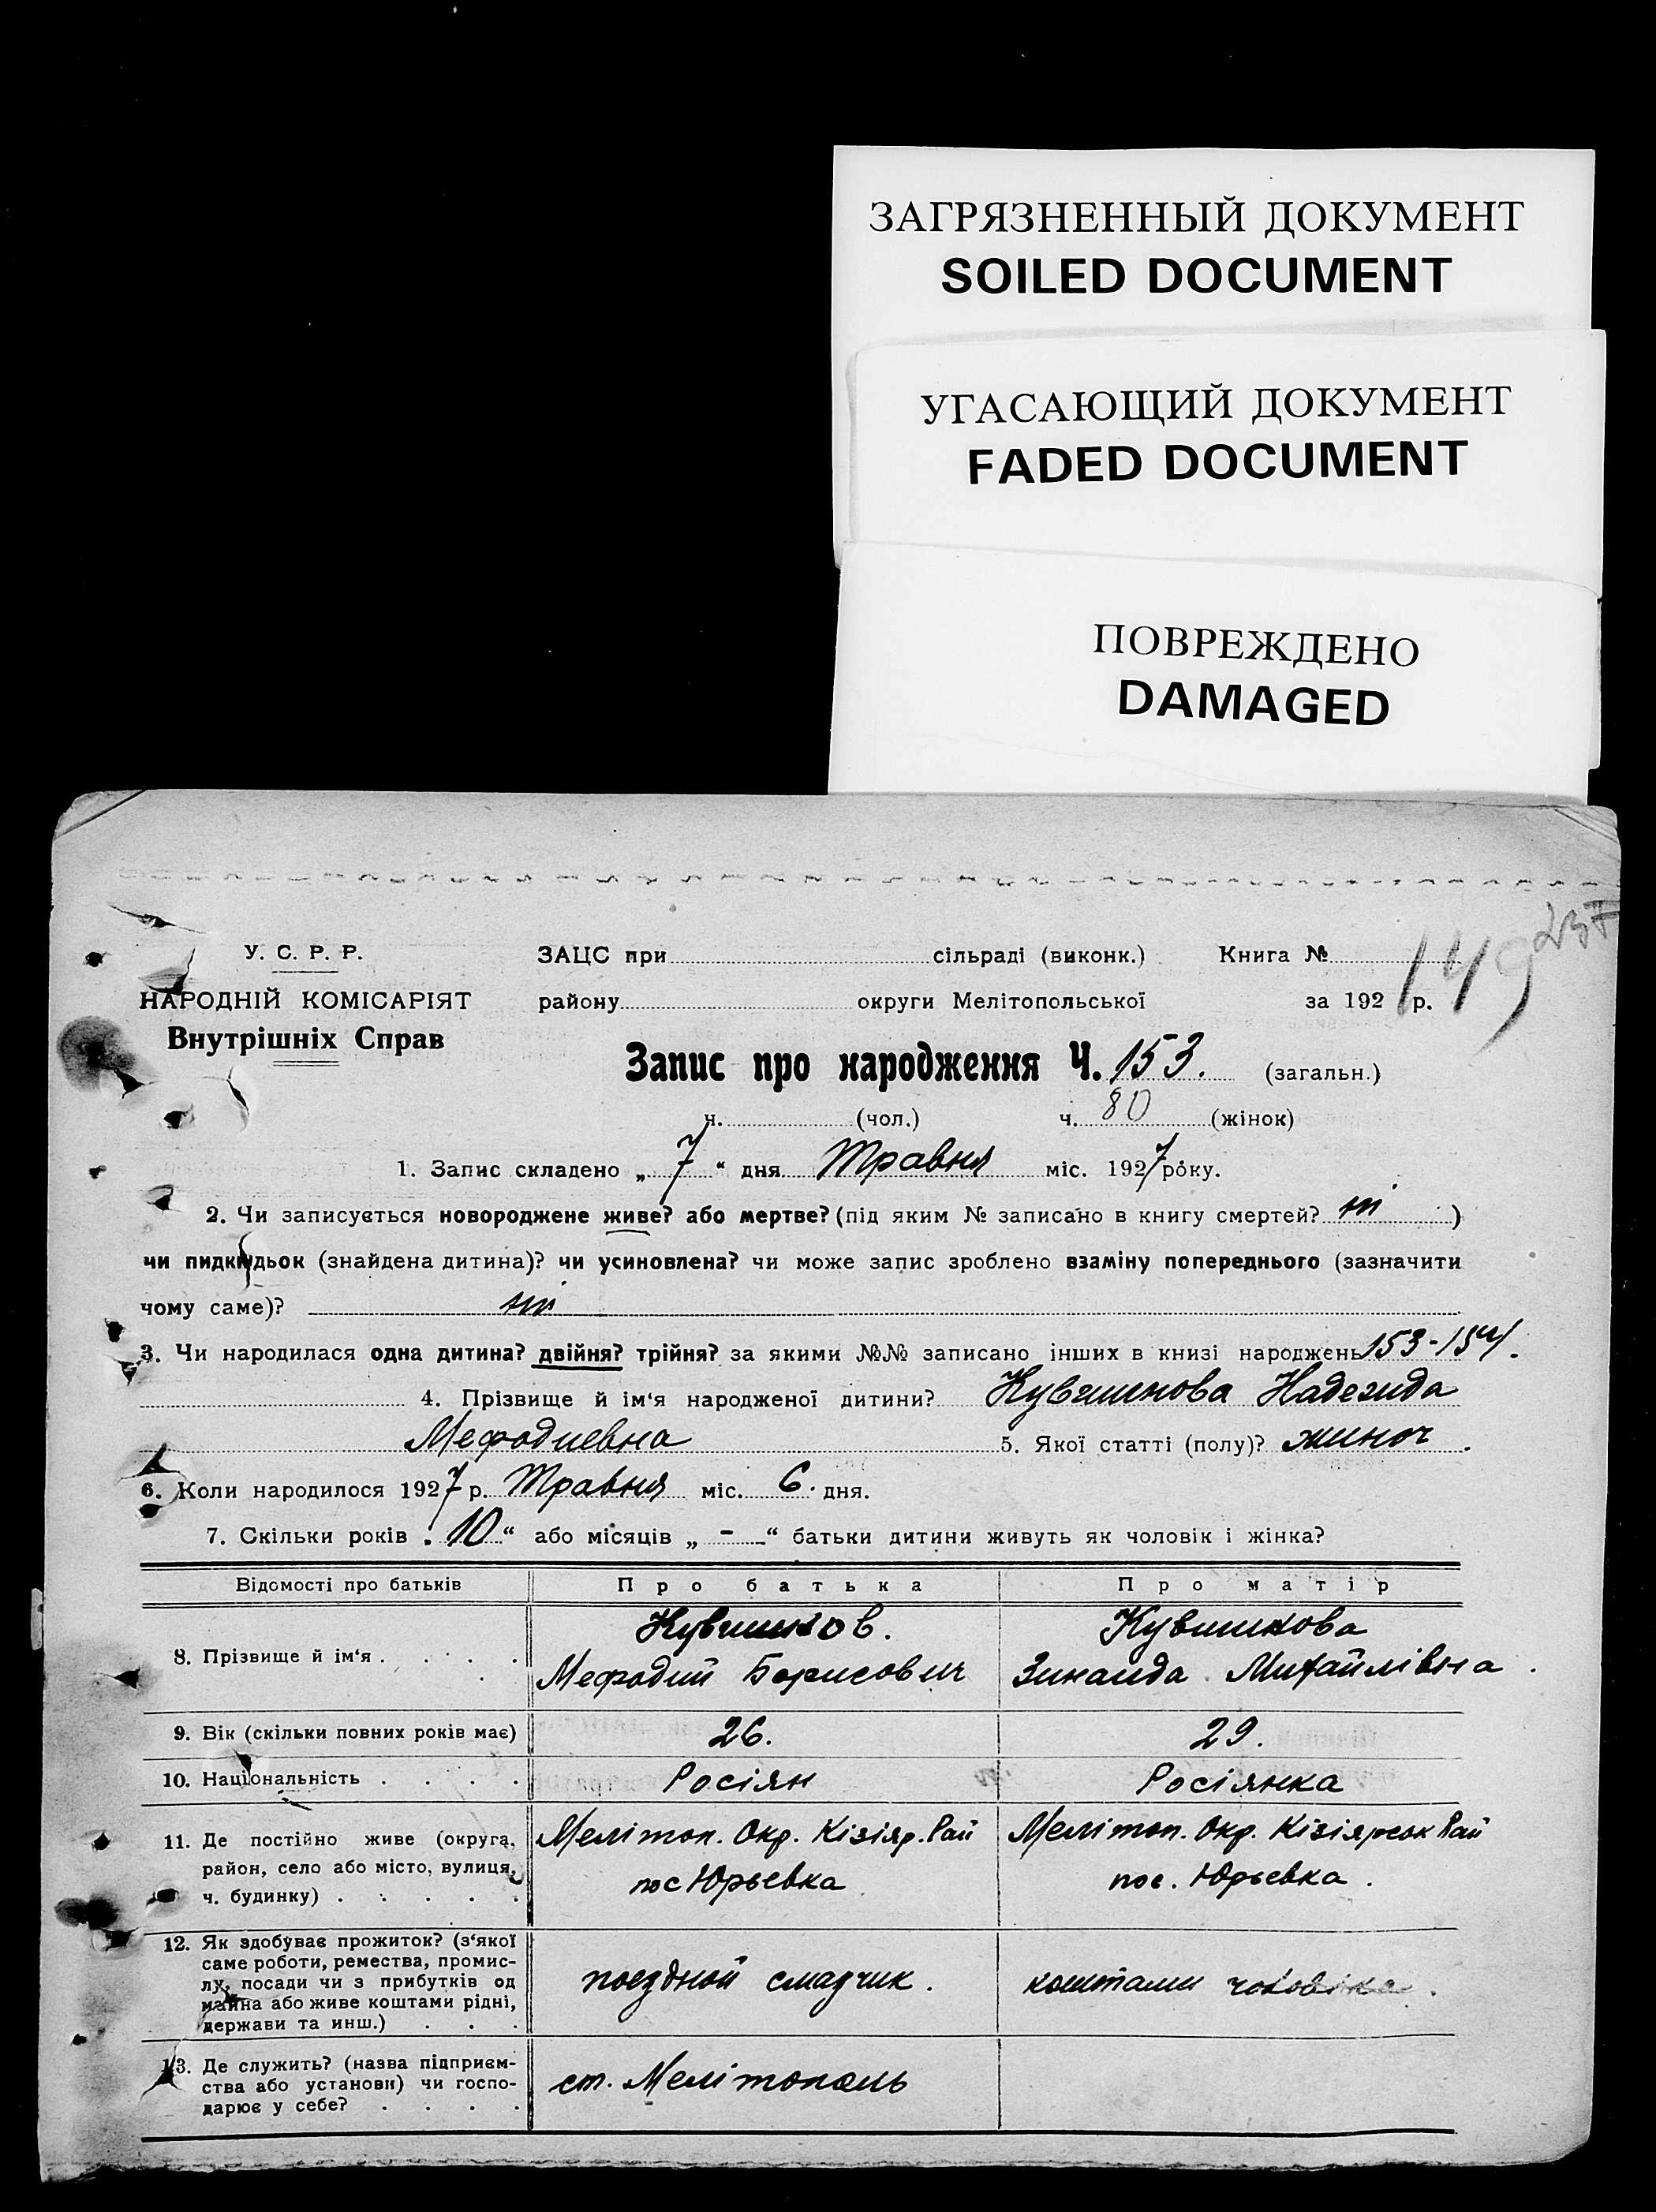 ЗАГРЯЗНЕННЫЙ ДОКУМЕНТ
SOILED DOCUMENT
УГАСАЮЩИЙ ДОКУМЕНТ
FADED DOCUMENT
ПОВРЕЖДЕНО
DAMAGED
237
149
У. С. Р. Р.
НАРОДНІЙ КОМІСАРІЯТ
Внутрішніх Справ
ЗАЦС при сільраді (виконк.) Книга №
району округи Мелітопольської за 192 р.
Запис про народження Ч. 153. (загальн.)
ч. (чол.) ч. 80 (жінок)
1. Запис складено „ 7 “ дня Травня міс. 1927 року.
2. Чи записується новороджене живе? або мертве? (під яким № записано в книгу смертей? ні )
чи пидкидьок (знайдена дитина)? чи усиновлена? чи може запис зроблено взаміну попереднього (зазначити
чому саме)? ні
3. Чи народилася одна дитина? двійня? трійня? за якими №№ записано інших в книзі народжень 153-154.
4. Прізвище й ім‘я народженої дитини? Кувшинова Надежда
Мефодиевна 5. Якої статті (полу)? жиноч.
6. Коли народилося 1927 р. Травня міс. 6. дня.
7. Скільки років „ 10 “ або місяців „ - “ батьки дитини живуть як чоловік і жінка?
Відомості про батьків Про батька Про матір
8. Прізвище й ім‘я . . . . .
Кувшинов.
Мефодий Борисович
Кувшинова
Зинаида Михайлівна.
9. Вік (скільки повних років має) 26. 29.
10. Національність . . . . Росіян Росіянка
11. Де постійно живе (округа,
район, село або місто, вулиця,
ч. будинку) . . . . .
Мелітоп. Окр. Кізіяр. Рай
пос Юрьевка
Мелітоп. Окр. Кізіярськ Рай
пос. Юрьевка.
12. Як здобуває прожиток? (з‘якої
саме роботи, ремества, промис-
лу, посади чи з прибутків од
майна або живе коштами рідні,
держави та инш.) . . .
поездной смазчик.
коштами чоловіка.
13. Де служить? (назва підприєм-
ства або установи) чи госпо-
дарює у себе? . . . .
ст. Мелітополь